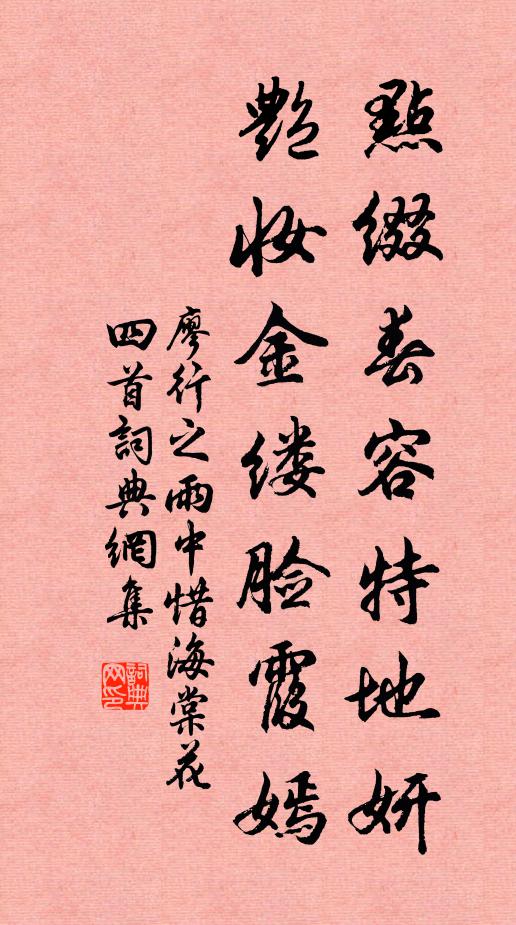 點綴春容特地妍
艷妆金缕脸霞嫣
廖行之雨中惜海棠花
四首詞典網集
詞典网印